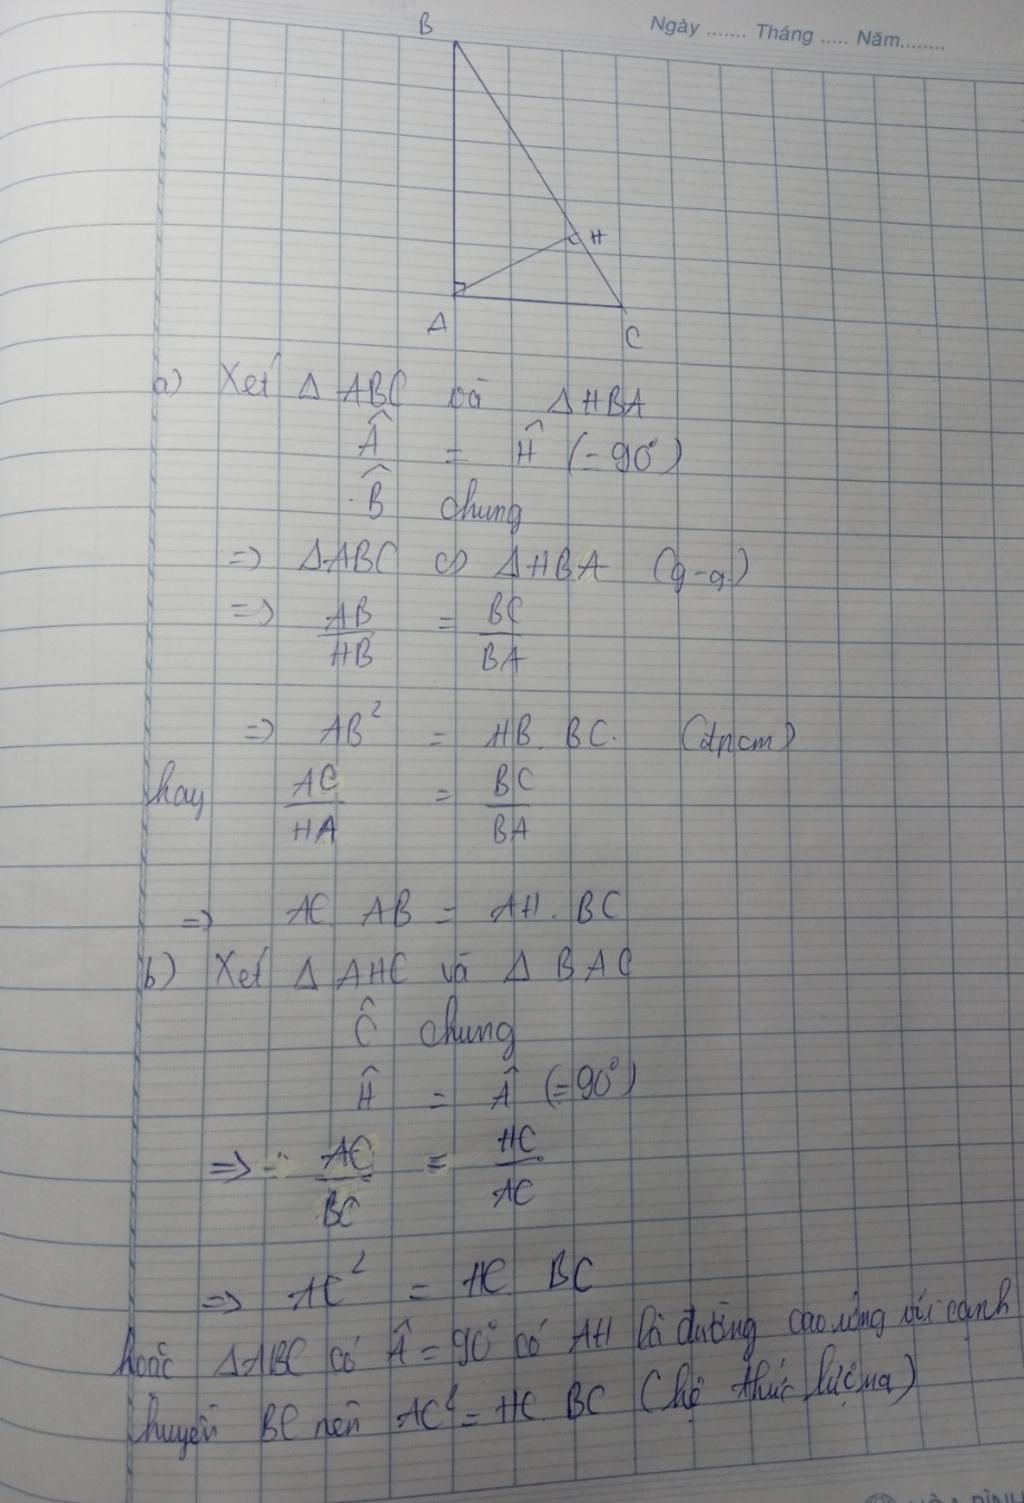 Ngày ....... Tháng ..... Năm........
B
H
A
C
a) Xét Δ ABC và Δ HBA
Â = Ĥ (= 90°)
B̂ chung
=> ΔABC ∽ ΔHBA (g-g)
=> AB/HB = BC/BA
=> AB² = HB. BC. (đpcm)
hay AC/HA = BC/BA
=> AC. AB = AH. BC
b) Xét Δ AHC và Δ BAC
Ĉ chung
Ĥ = Â (= 90°)
=> AC/BC = HC/AC
=> AC² = HC BC
hoặc ΔABC có Â = 90° có AH là đường cao ứng với cạnh
huyền BC nên AC² = HC. BC (hệ thức lượng)